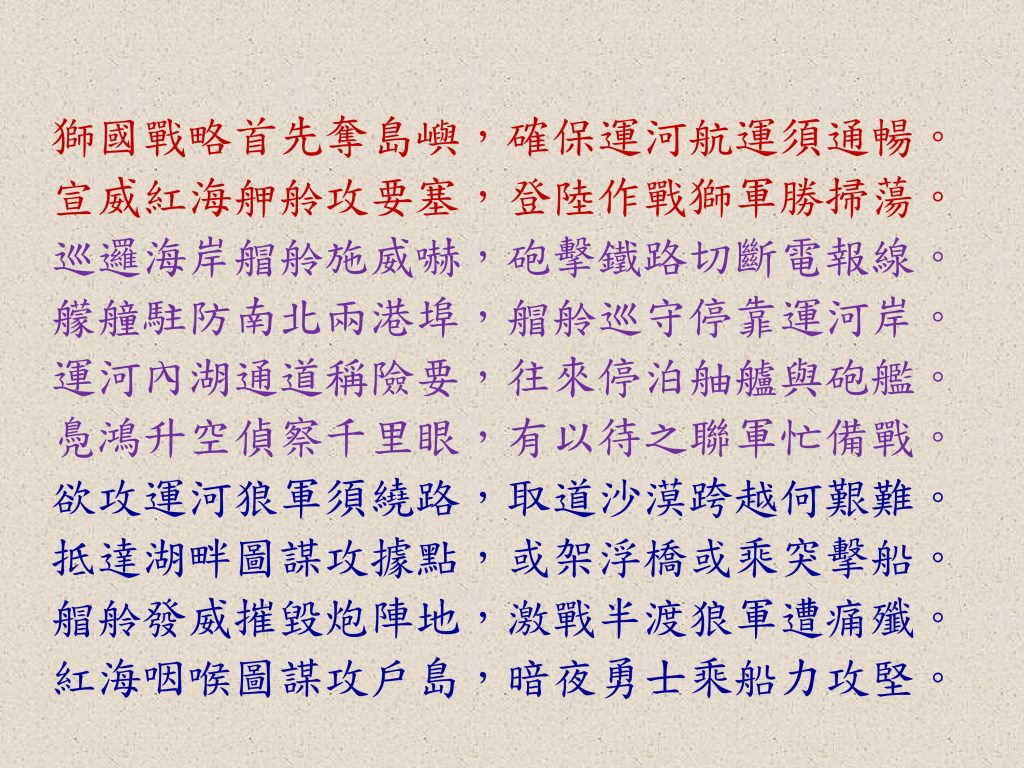 獅國戰略首先奪島嶼，確保運河航運須通暢。
宣威紅海舺舲攻要塞，登陸作戰獅軍勝掃蕩。
巡邏海岸艒舲施威嚇，砲擊鐵路切斷電報線。
艨艟駐防南北兩港埠，艒舲巡守停靠運河岸。
運河內湖通道稱險要，往來停泊舳艫與砲艦。
鳧鴻升空偵察千里眼，有以待之聯軍忙備戰。
欲攻運河狼軍須繞路，取道沙漠跨越何艱難。
抵達湖畔圖謀攻據點，或架浮橋或乘突擊船。
艒舲發威摧毀炮陣地，激戰半渡狼軍遭痛殲。
紅海咽喉圖謀攻戶島，暗夜勇士乘船力攻堅。